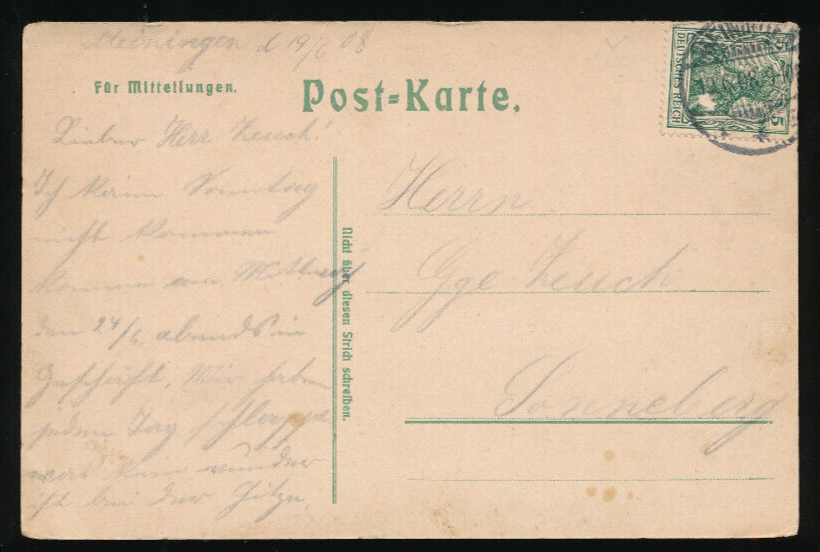 Meiningen d 19/6 08
Für Mitteilungen.
Post-Karte.
DEUTSCHES REICH
5
5
Lieber Herr Zeuch!
Ich kann Sonntag
nicht kommen
komme am Mittwoch
den 24/6. abends in
Geschäft. Wir haben
jeden Tag schlappe
was kein wunder
ist bei der Hitze.
Nicht über diesen Strich schreiben.
Herrn
Gge Zeuch
Sonneberg